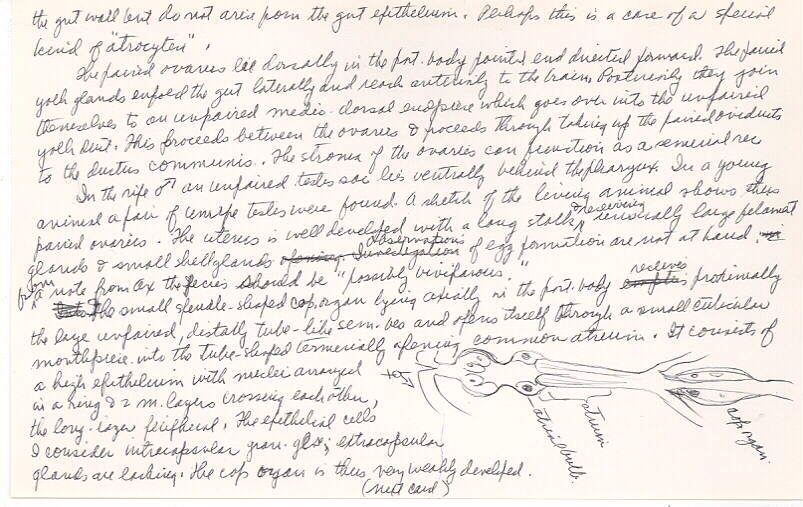 the gut wall but do not arise from the gut epithelium. Perhaps this is a case of a special
kind of "atrocyten".
The paired ovaries lie dorsally in the post. body pointed end directed forward. The paired
yolk glands enfold the gut laterally and reach anteriorly to the brain. Posteriorly they join
themselves to an unpaired medio-dorsal endpiece which goes over into the unpaired
yolk duct. This proceeds between the ovaries & proceeds through taking up the paired oviducts
to the ductus communis. The stroma of the ovaries can function as a seminal rec
In the ripe ♂ an unpaired testes sac lies ventrally behind the pharynx. In a young
animal a pair of unripe testes were found. A sketch of the living animal shows thus
paired ovaries. The uterus is well developed with a long stalk & receiving unusually large filament
glands & small shell glands. Observations of egg formation are not at hand.
From a note from Ax the species should be "possibly viviparous."
The small spindle-shaped cop organ lying axially in the post. body receives proximally
the large unpaired, distally tube-like sem. ves and opens itself through a small cuticular
mouthpiece into the tube-shaped terminally opening common atrium. It consists of
a high epithelium with nuclei arranged
in a ring & 2 m. layers crossing each other,
the long. layer peripheral. The epithelial cells
I consider intracapsular gran. gls; extracapsular
glands are lacking. The cop organ is thus very weakly developed.
(next card)
atrium
cop organ.